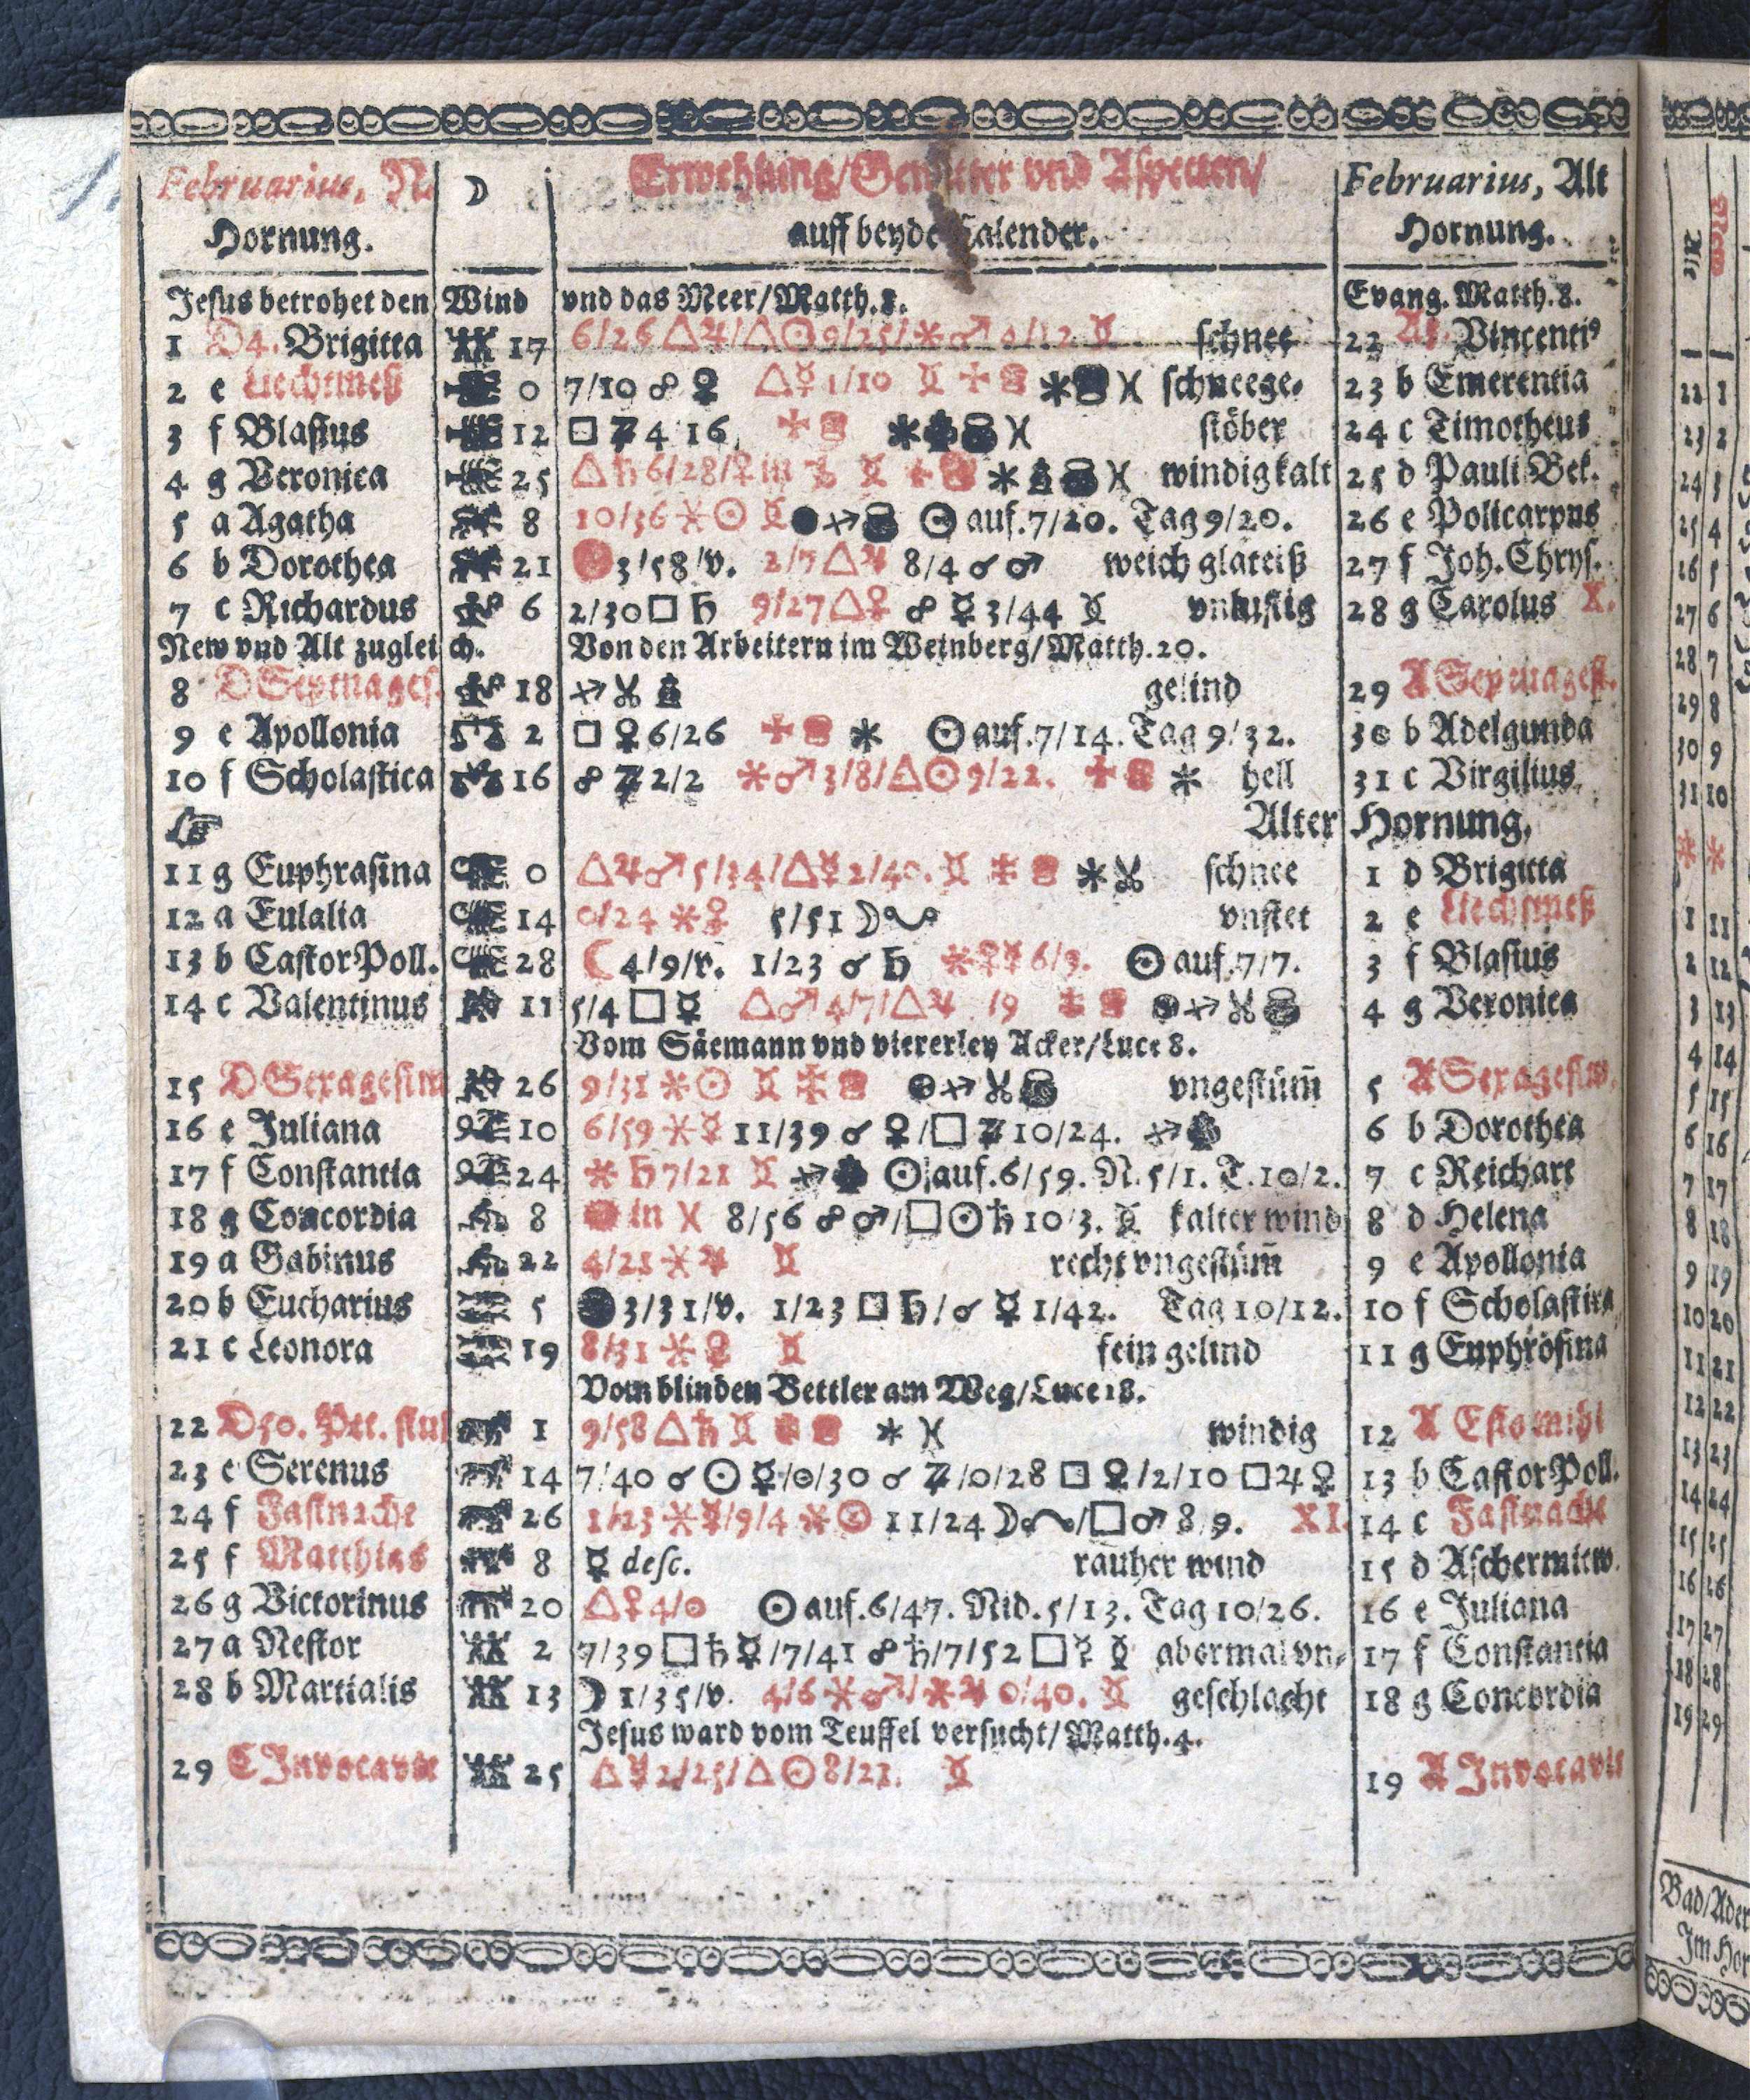 Februarius, N. ☽ Erwehlung/Gewitter vnd Aspecten/ Februarius, Alt
Hornung. auff beyde Calender. Hornung.
Jesus betrohet den Wind vnd das Meer/Matth.8. Evang. Matth.8.
1 D4. Brigitta ♊ 17 6/26 △♃/△☉9/25/⚹♂ 4/12 schnee 22 Vincenti⁹
2 e Liechtmeß 0 7/10 ☍ ♀ △☿ 1/10 schneege- 23 b Emerentia
3 f Blasius 12 □ 4 16 stöber 24 c Timotheus
4 g Veronica 25 △♄ 6/28/♀ in windig kalt 25 d Pauli Bek.
5 a Agatha 8 10/36 ⚹☉ ☉ auf.7/20. Tag 9/20. 26 e Policarpus
6 b Dorothea 21 3/58/v. 2/7 △♃ 8/4 ☌ ♂ weich glateiß 27 f Joh. Chrys.
7 c Richardus 6 2/30 □ ♄ 9/27 △♀ ☍ ☿ 3/44 vnlustig 28 g Carolus X.
New vnd Alt zugleich. Von den Arbeitern im Weinberg/Matth.20.
8 D Septuages. 18 gelind 29 A Septuagesi.
9 e Apollonia 2 □ ♀ 6/26 ☉ auf.7/14. Tag 9/32. 30 b Adelgunda
10 f Scholastica 16 ☍ 2/2 ⚹♂ 3/8/△☉ 9/22. hell 31 c Virgilius
Alter Hornung.
11 g Euphrasina 0 △♃♂ 5/34/△☿ 2/40. schnee 1 d Brigitta
12 a Eulalia 14 0/24 ⚹♀ 5/51 ☽ vnstet 2 e Liechtmeß
13 b Castor Poll. 28 ☾ 4/9/v. 1/23 ☌ ♄ ⚹♀☿ 6/9. ☉ auf.7/7. 3 f Blasius
14 c Valentinus 11 5/4 □ ☿ △♂ 4/7/△♃ 19 4 g Veronica
Vom Säemann vnd viererley Acker/Luce 8.
15 D Sexagesim 26 9/31 ⚹☉ vngestüm̄ 5 A Sexagesim.
16 e Juliana 10 6/59 ⚹☿ 11/39 ☌ ♀/□ 10/24. 6 b Dorothea
17 f Constantia 24 ⚹ ♄ 7/21 ☉ auf.6/59. N. 5/1. T.10/2. 7 c Reichart
18 g Concordia 8 in ♓ 8/56 ☍ ♂/□☉♄ 10/3. kalter wind 8 d Helena
19 a Gabinus 22 4/21 ⚹♃ recht vngestüm̄ 9 e Apollonia
20 b Eucharius 5 3/31/v. 1/23 □ ♄/☌ ☿ 1/42. Tag 10/12. 10 f Scholastica
21 c Leonora 19 8/31 ⚹♀ fein gelind 11 g Euphrosina
Vom blinden Bettler am Weg/Luce 18.
22 D50. Pet. stul 1 9/58 △♄ windig 12 A Estomihi
23 e Serenus 14 7/40 ☌ ☉ ☿/0/30 ☌ /0/28 □ ♀/2/10 □♃♀ 13 b Castor Poll.
24 f Fastnacht 26 1/23 ⚹☿/9/4 ⚹☉ 11/24 ☽/□♂ 8/9. XI. 14 c Fastnacht
25 f Matthias 8 ☿ desc. rauher wind 15 d Aschermitw.
26 g Victorinus 20 △♀ 4/0 ☉ auf.6/47. Nid.5/13. Tag 10/26. 16 e Juliana
27 a Nestor ♊ 2 7/39 □♄☿/7/41 ☍ ♄/7/52 □☿ abermal vn- 17 f Constantia
28 b Martialis ♊ 13 ☽ 1/35/v. 4/6 ⚹♂/⚹♃ 0/40. geschlacht 18 g Concordia
Jesus ward vom Teuffel versucht/Matth.4.
29 Invocavit ♊ 25 △☿ 2/25/△☉ 8/21. 19 A Invocavit
Alt New
22 1
23 2
24 3
25 4
26 5
27 6
28 7
29 8
30 9
31 10
1 11
2 12
3 13
4 14
5 15
6 16
7 17
8 18
9 19
10 20
11 21
12 22
13 23
14 24
15 25
16 26
17 27
18 28
19 29
Bad/Ader
Im Hor